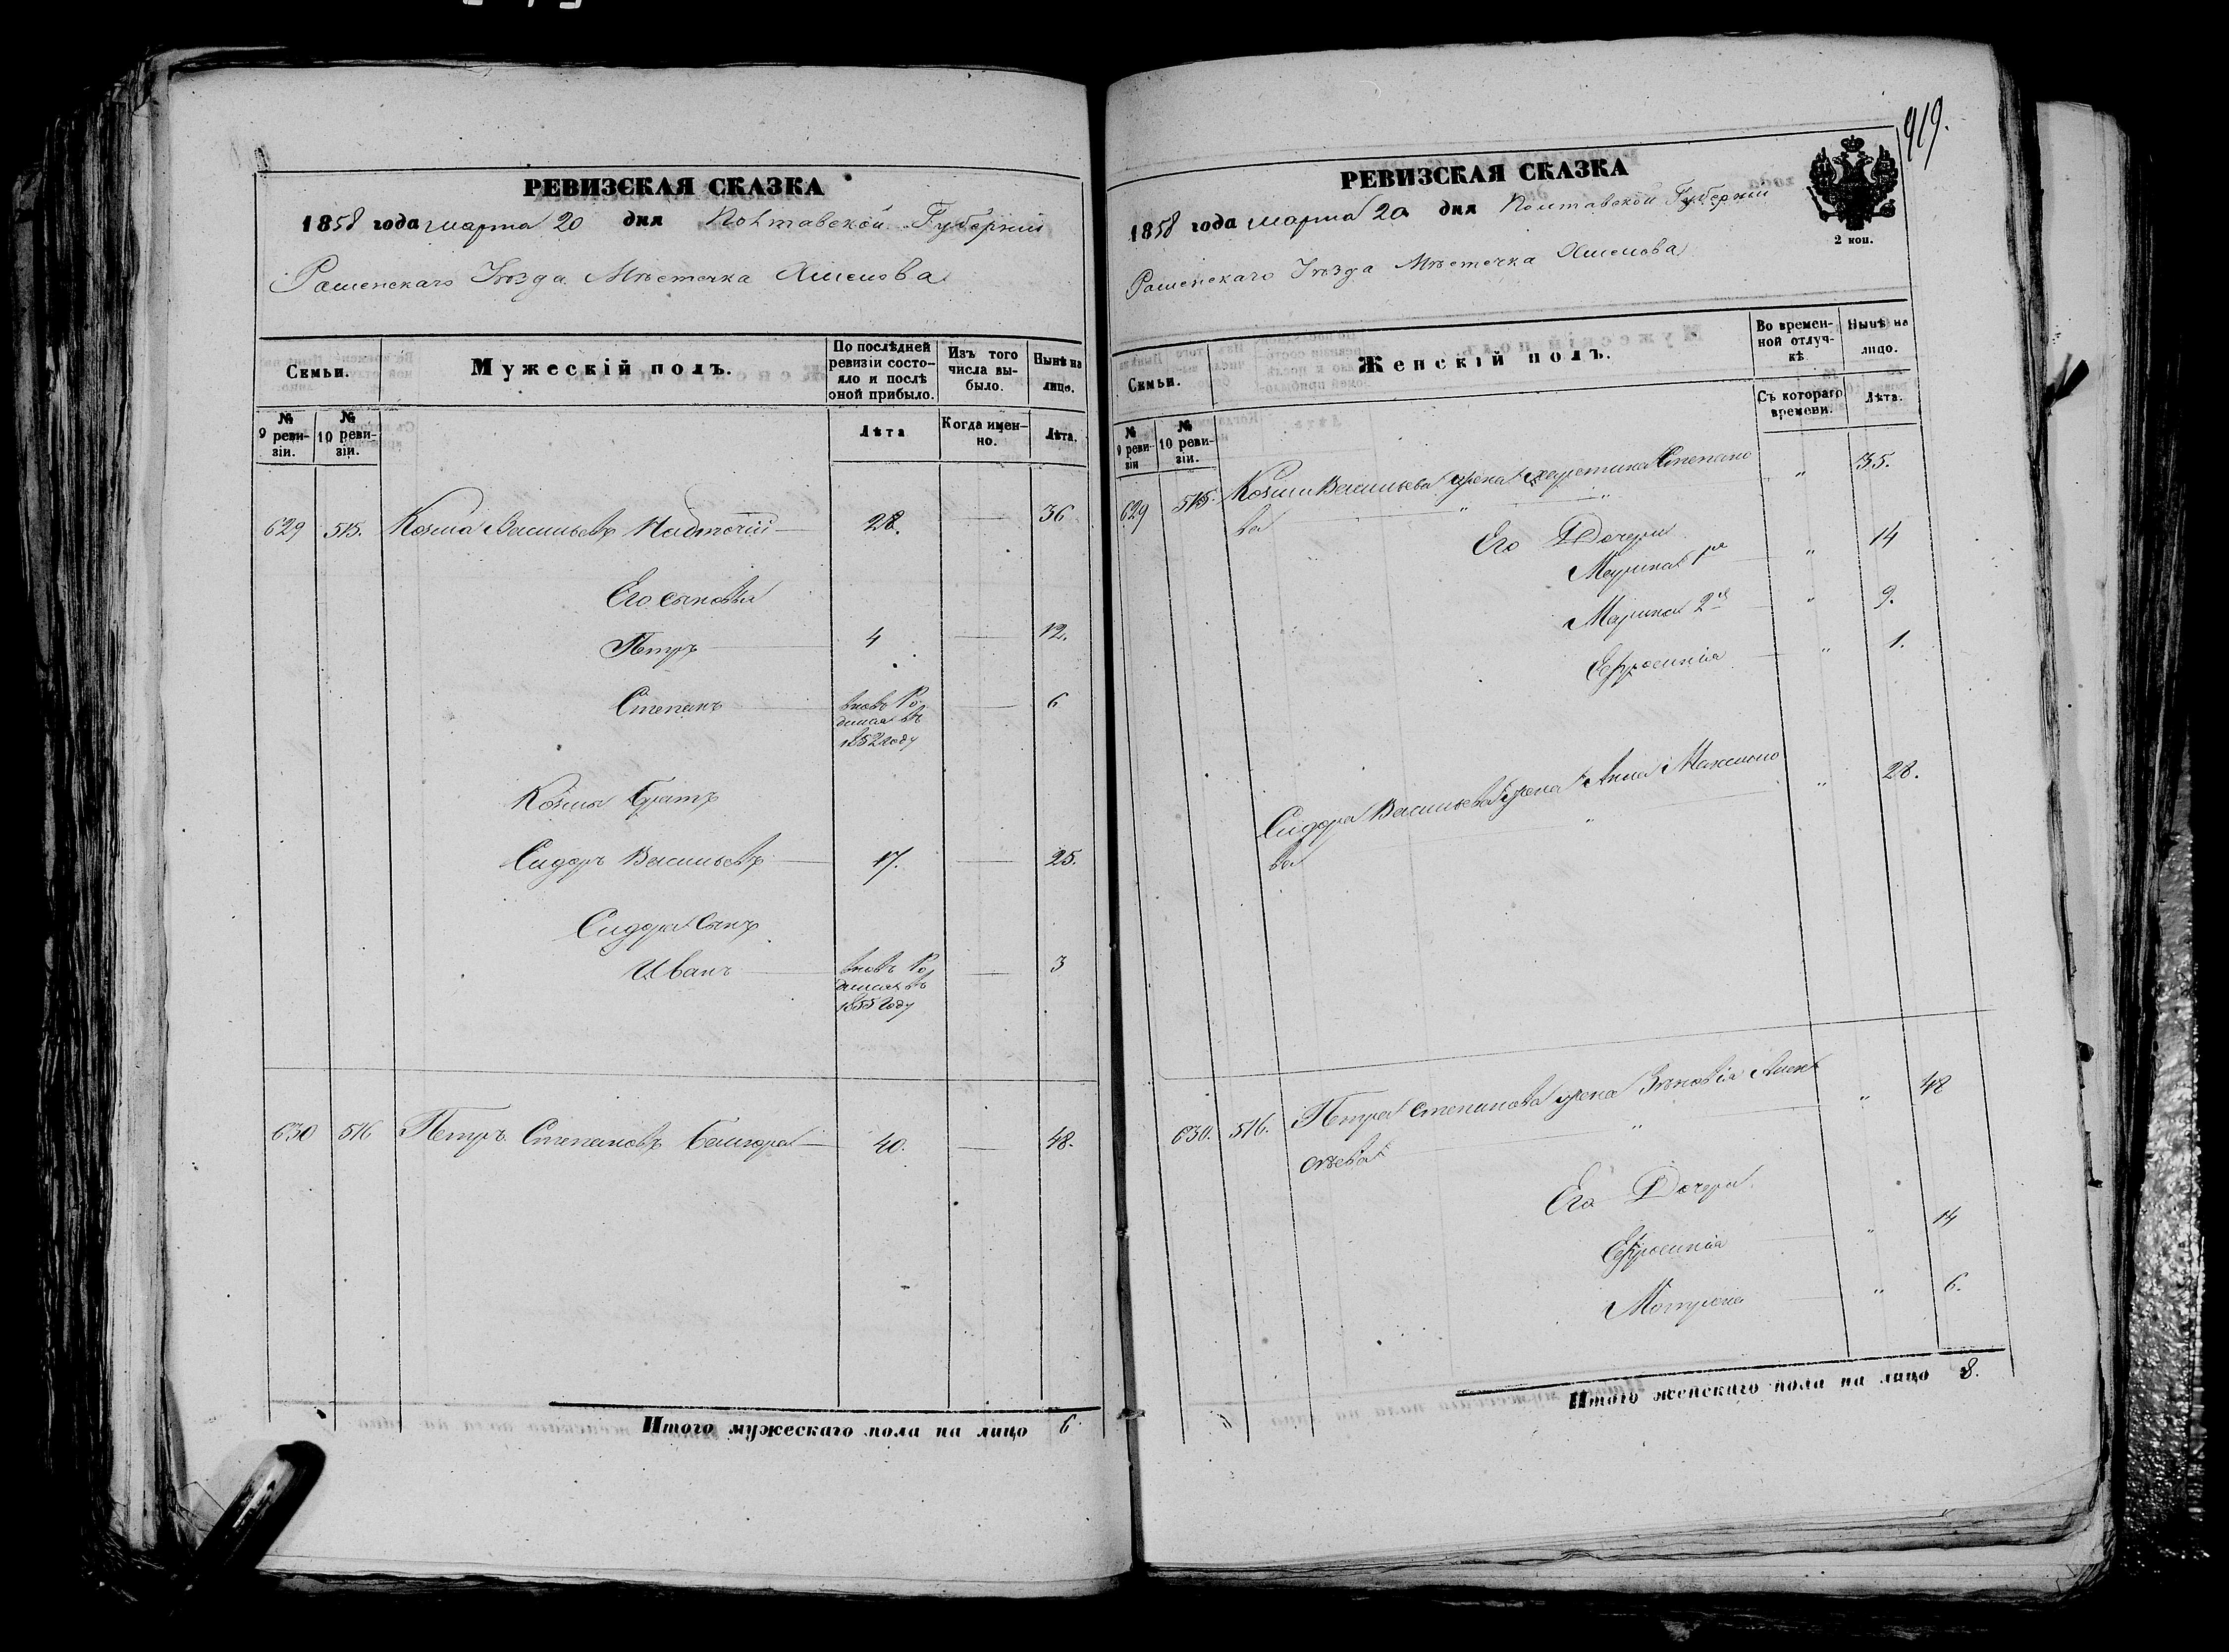 РЕВИЗСКАЯ СКАЗКА
1858 года марта 20 дня Полтавской Губерніи
Роменскаго Уѣзда Мѣстечка Смелова
Семьи.
Мужескій полъ.
По послѣдней ревизіи состояло и послѣ оной прибыло.
Изъ того числа выбыло.
Нынѣ на лицо.
№ 9 ревизіи.
№ 10 ревизіи.
Лѣта
Когда именно.
Лѣта.
629 515. Козма Васильевъ Надточій 28. 36
Его сыновья
Петръ 4 12.
Степанъ вновь Ро- 6
дился въ
1852 году
Козмы братъ
Сидоръ Васильевъ 17. 25.
Сидора сынъ
Иванъ вновь Ро 3
дился въ
1855 году
630 516 Петръ Степановъ 40. 48.
Итого мужескаго пола на лицо 6
919.
РЕВИЗСКАЯ СКАЗКА
1858 года марта 20 дня Полтавской Губерніи
2 коп.
Роменскаго Уѣзда Мѣстечка Смелова
Семьи.
Женскій полъ.
Во временной отлучкѣ.
Нынѣ на лицо.
№ 9 ревизіи
№ 10 ревизіи.
Съ котораго времени.
Лѣта.
629 515. Козмы Васильева жена Харитина Степано " 35.
ва
Его Дочери
Марина 1я " 14
Марина 2я " 9.
Ефросинія " 1.
Сидора Васильева жена Анна Максимо " 28.
ва
630. 516. Петра Степанова жена Зѣновія Алек " 48
сѣева
Его Дочери
Ефросинія " 14
Мотрона " 6.
Итого женскаго пола на лицо 8.